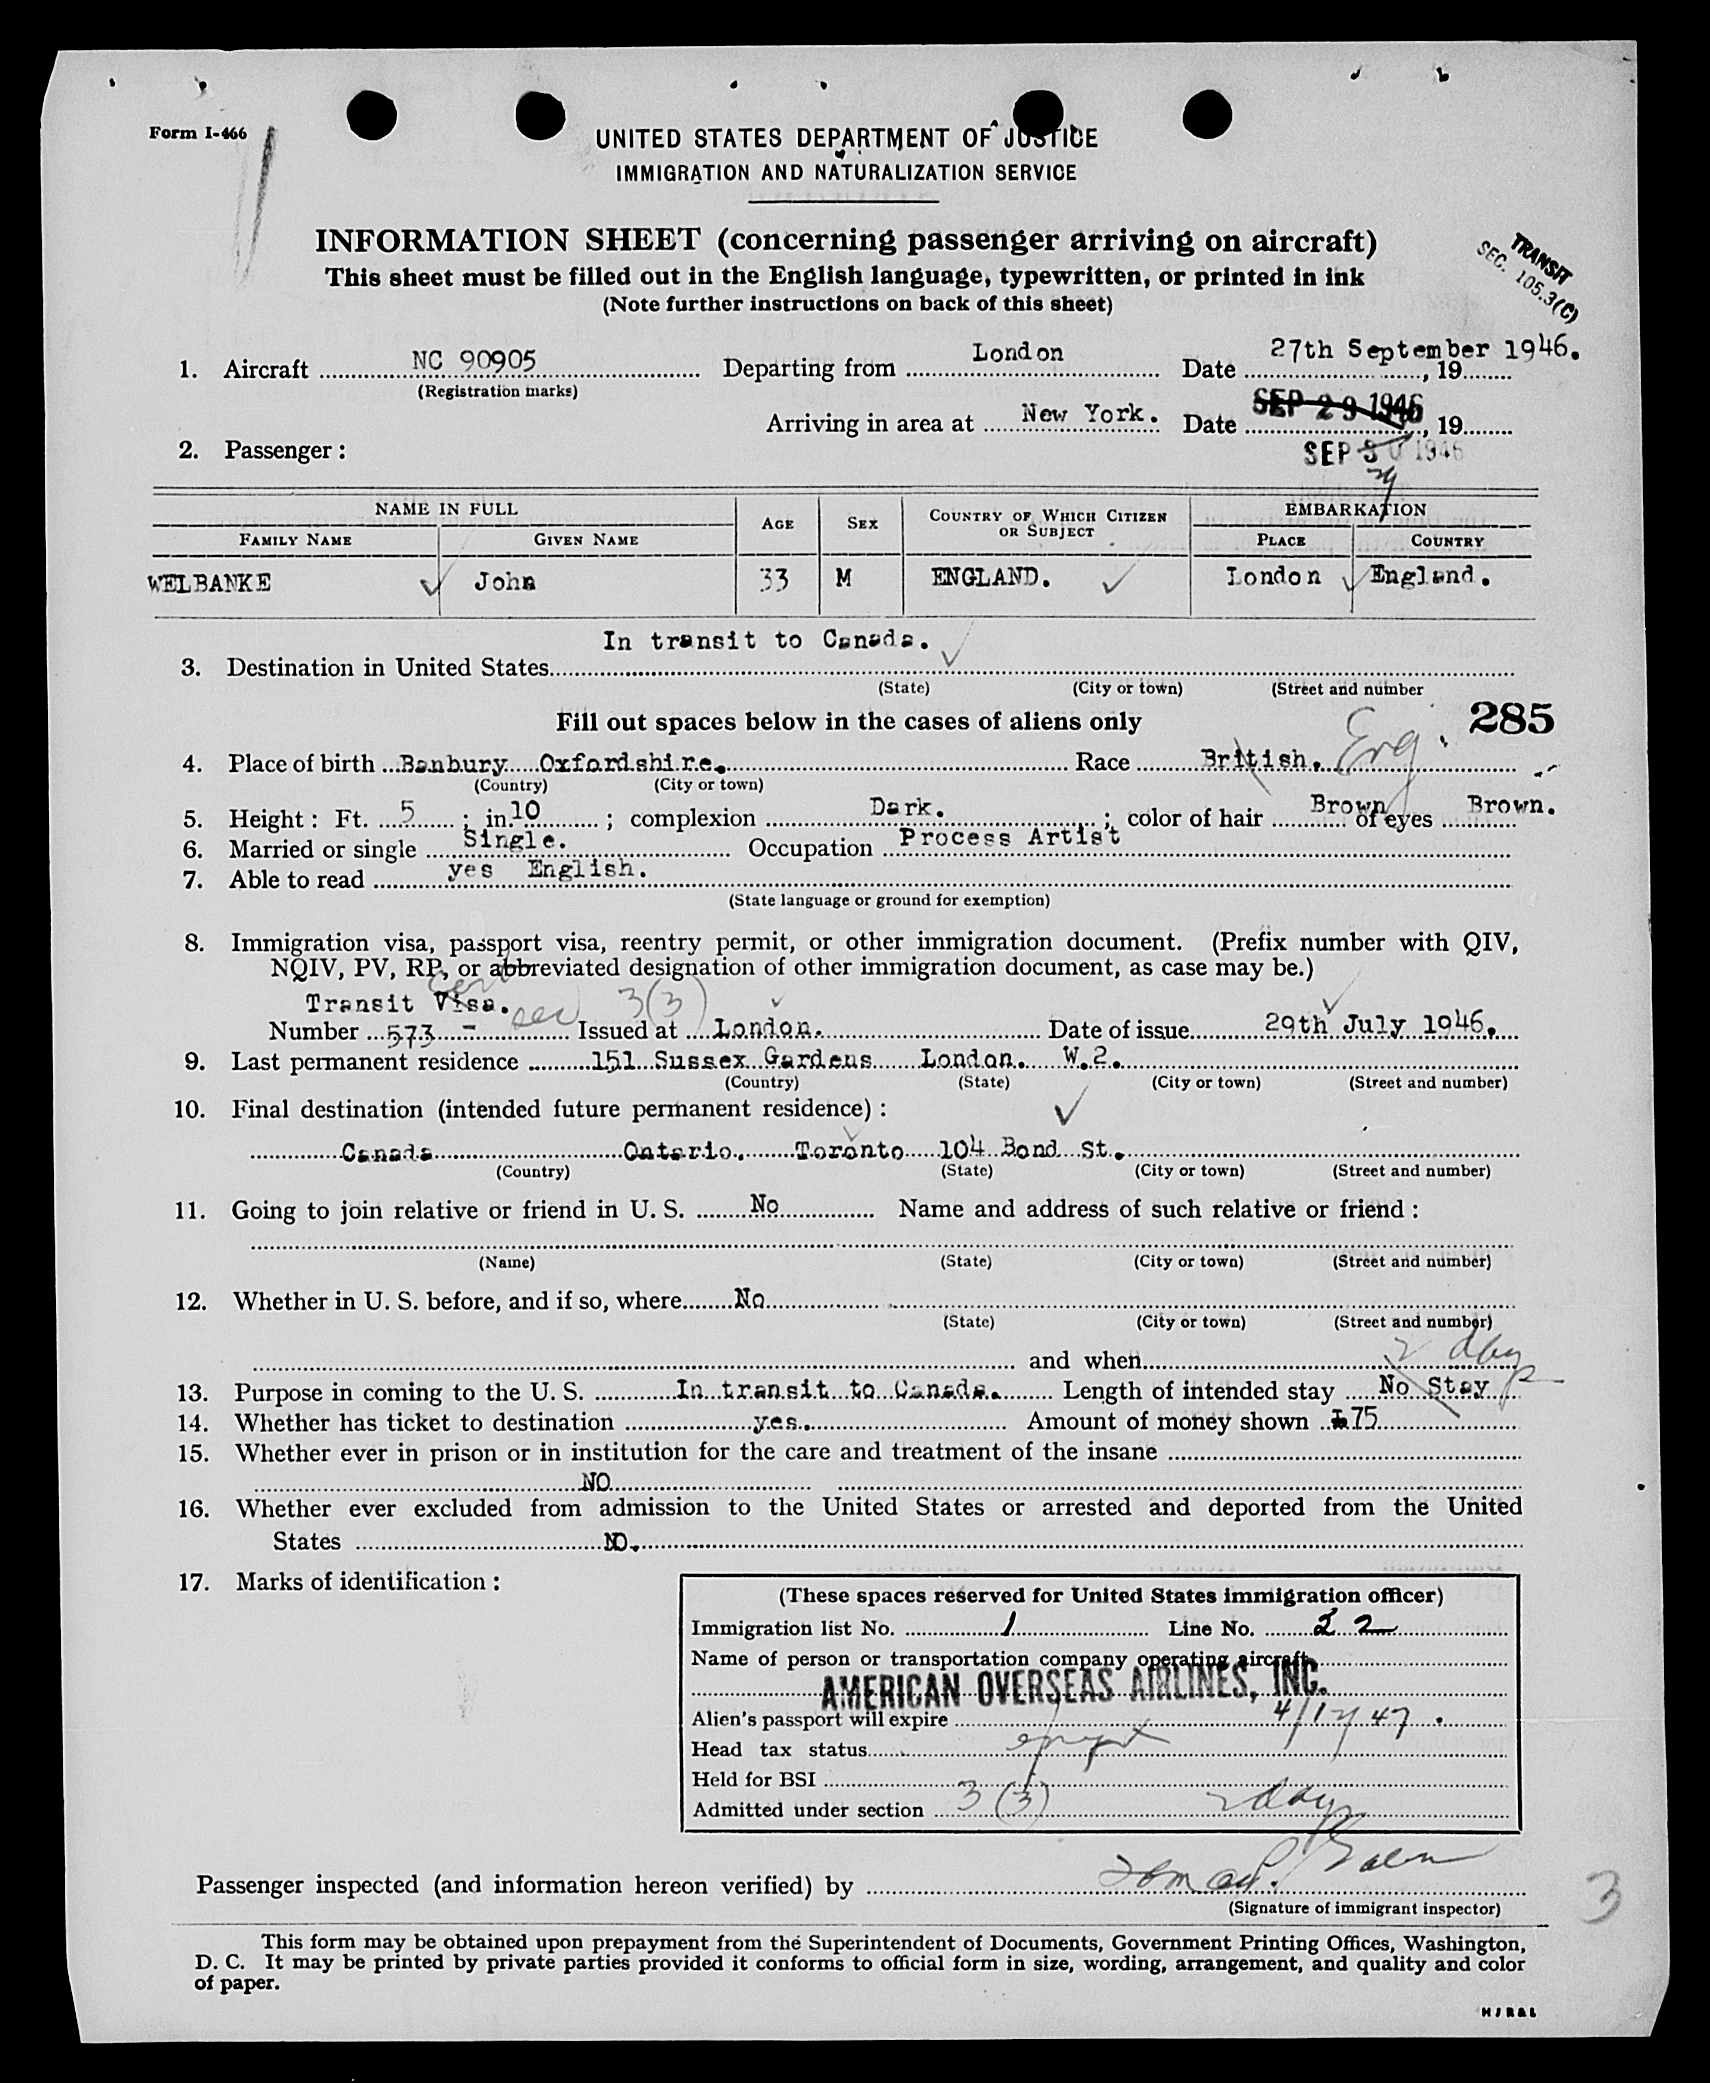 Form I-466
UNITED STATES DEPARTMENT OF JUSTICE
IMMIGRATION AND NATURALIZATION SERVICE
INFORMATION SHEET (concerning passenger arriving on aircraft)
This sheet must be filled out in the English language, typewritten, or printed in ink
(Note further instructions on back of this sheet)
TRANSIT
SEC. 105.3(C)
1. Aircraft NC 90905 Departing from London Date 27th September 1946. , 19
(Registration marks)
Arriving in area at New York. Date SEP 29 1946 , 19
2. Passenger: SEP 30 1946
29
NAME IN FULL AGE SEX COUNTRY OF WHICH CITIZEN OR SUBJECT EMBARKATION
FAMILY NAME GIVEN NAME PLACE COUNTRY
WELBANKE John 33 M ENGLAND. London England.
In transit to Canada.
3. Destination in United States
(State) (City or town) (Street and number
Fill out spaces below in the cases of aliens only 285
4. Place of birth Banbury Oxfordshire. Race British. Eng.
(Country) (City or town)
5. Height: Ft. 5 ; in. 10 ; complexion Dark. ; color of hair Brown of eyes Brown.
6. Married or single Single. Occupation Process Artist
7. Able to read yes English.
(State language or ground for exemption)
8. Immigration visa, passport visa, reentry permit, or other immigration document. (Prefix number with QIV,
NQIV, PV, RP, or abbreviated designation of other immigration document, as case may be.)
Transit Visa. Cert sec 3(3)
Number 573 - Issued at London. Date of issue 29th July 1946.
9. Last permanent residence 151 Sussex Gardens London. W.2.
(Country) (State) (City or town) (Street and number)
10. Final destination (intended future permanent residence):
Canada Ontario. Toronto 104 Bond St.
(Country) (State) (City or town) (Street and number)
11. Going to join relative or friend in U. S. No Name and address of such relative or friend:
(Name) (State) (City or town) (Street and number)
12. Whether in U. S. before, and if so, where No
(State) (City or town) (Street and number)
and when 2 days
13. Purpose in coming to the U. S. In transit to Canada. Length of intended stay No Stay
14. Whether has ticket to destination yes. Amount of money shown £75
15. Whether ever in prison or in institution for the care and treatment of the insane
NO
16. Whether ever excluded from admission to the United States or arrested and deported from the United
States NO.
17. Marks of identification:
(These spaces reserved for United States immigration officer)
Immigration list No. 1 Line No. 22
Name of person or transportation company operating aircraft
AMERICAN OVERSEAS AIRLINES, INC.
Alien's passport will expire 4/17/47.
Head tax status exempt
Held for BSI
Admitted under section 3(3) 2 days
Passenger inspected (and information hereon verified) by
(Signature of immigrant inspector)
3
This form may be obtained upon prepayment from the Superintendent of Documents, Government Printing Offices, Washington,
D. C. It may be printed by private parties provided it conforms to official form in size, wording, arrangement, and quality and color
of paper.